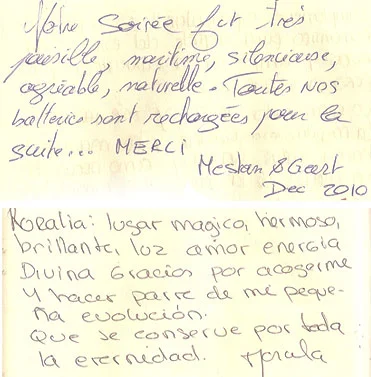 Notre Soirée fut très
paisible, maritime, silencieuse,
agréable, naturelle. Toutes nos
batteries sont rechargées pour la
suite... MERCI
Dec 2010
Roralia: lugar magico, hermoso,
brillante, luz amor energia
Divina Gracias por acogerme
Y hacer parte de mi peque-
ña evolución.
Que se conserve por toda
la eternidad.